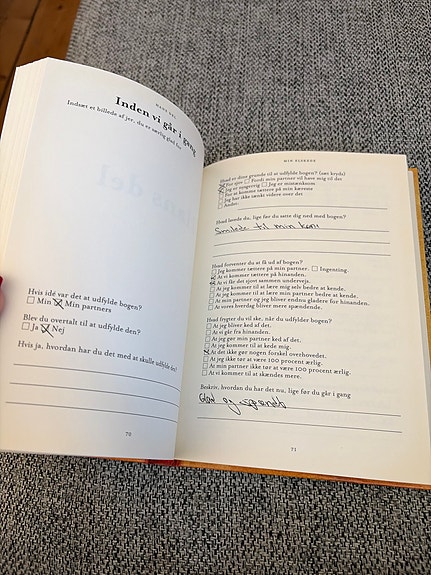 HANS DEL
Inden vi går i gang
Indsæt et billede af jer, du er særlig glad for
Hvis idé var det at udfylde bogen?
Min Min partners
Blev du overtalt til at udfylde den?
Ja Nej
Hvis ja, hvordan har du det med at skulle udfylde den?
70
MIN ELSKEDE
Hvad er dine grunde til at udfylde bogen? (sæt kryds)
For sjov Fordi min partner vil have mig til det
Jeg er nysgerrig Jeg er mistænksom
For at komme tættere på min kæreste
Jeg har ikke tænkt videre over det
Andet:
Hvad lavede du, lige før du satte dig ned med bogen?
Smilede til min kone
Hvad forventer du at få ud af bogen?
Jeg kommer tættere på min partner. Ingenting.
At vi kommer tættere på hinanden.
At vi får det sjovt sammen undervejs.
At jeg kommer til at lære mig selv bedre at kende.
At jeg kommer til at lære min partner bedre at kende.
At min partner og jeg bliver endnu gladere for hinanden.
At vores hverdag bliver mere spændende.
Hvad frygter du vil ske, når du udfylder bogen?
At jeg bliver ked af det.
At vi går fra hinanden.
At jeg gør min partner ked af det.
At jeg kommer til at kede mig.
At det ikke gør nogen forskel overhovedet.
At jeg ikke tør at være 100 procent ærlig.
At min partner ikke tør at være 100 procent ærlig.
At vi kommer til at skændes mere.
Beskriv, hvordan du har det nu, lige før du går i gang
Glad og spændt
71